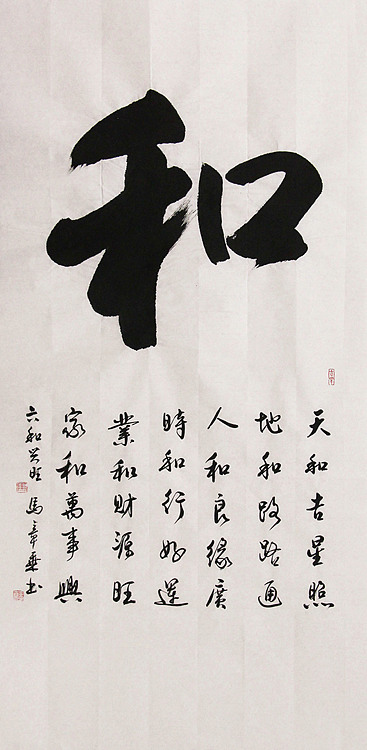 和
天和吉星照
地和路路通
人和良緣廣
時和行好運
業和財源旺
家和萬事興
六和兴旺 馬章乘书